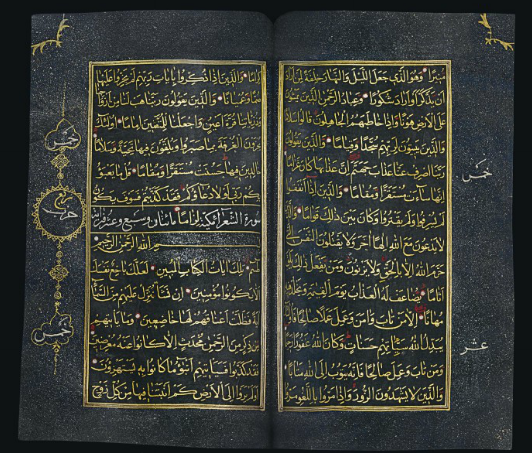 منيرا وهو الذي جعل الليل والنهار خلفة لمن اراد
ان يذكر او اراد شكورا وعباد الرحمن الذين يمشون
على الارض هونا واذا خاطبهم الجاهلون قالوا سلاما
والذين يبيتون لربهم سجدا وقياما والذين يقولون
ربنا اصرف عنا عذاب جهنم ان عذابها كان غراما
خمس
انها ساءت مستقرا ومقاما والذين اذا انفقوا
لم يسرفوا ولم يقتروا وكان بين ذلك قواما والذين
لا يدعون مع الله الها اخر ولا يقتلون النفس التي
حرم الله الا بالحق ولا يزنون ومن يفعل ذلك يلق
اثاما يضاعف له العذاب يوم القيمة ويخلد فيه
مهانا الا من تاب وامن وعمل عملا صالحا فاولئك
يبدل الله سيئاتهم حسنات وكان الله غفورا رحيما
عشر
ومن تاب وعمل صالحا فانه يتوب الى الله متابا
والذين لا يشهدون الزور واذا مروا باللغو مروا
كراما والذين اذا ذكروا بايات ربهم لم يخروا عليها
صما وعميانا والذين يقولون ربنا هب لنا من ازواجنا
وذرياتنا قرة اعين واجعلنا للمتقين اماما اولئك
خمس
يجزون الغرفة بما صبروا ويلقون فيها تحية وسلاما
خالدين فيها حسنت مستقرا ومقاما قل ما يعبؤا
بكم ربي لولا دعاؤكم فقد كذبتم فسوف يكون
لزاما
سورة الشعراء مكية مائتان وسبع وعشرون اية
حزب
بسم الله الرحمن الرحيم
طسم تلك ايات الكتاب المبين لعلك باخع نفسك
الا يكونوا مؤمنين ان نشا ننزل عليهم من السماء
اية فظلت اعناقهم لها خاضعين وما ياتيهم
من ذكر من الرحمن محدث الا كانوا عنه معرضين
خمس
فقد كذبوا فسياتيهم انبؤا ما كانوا به يستهزؤن
اولم يروا الى الارض كم انبتنا فيها من كل زوج